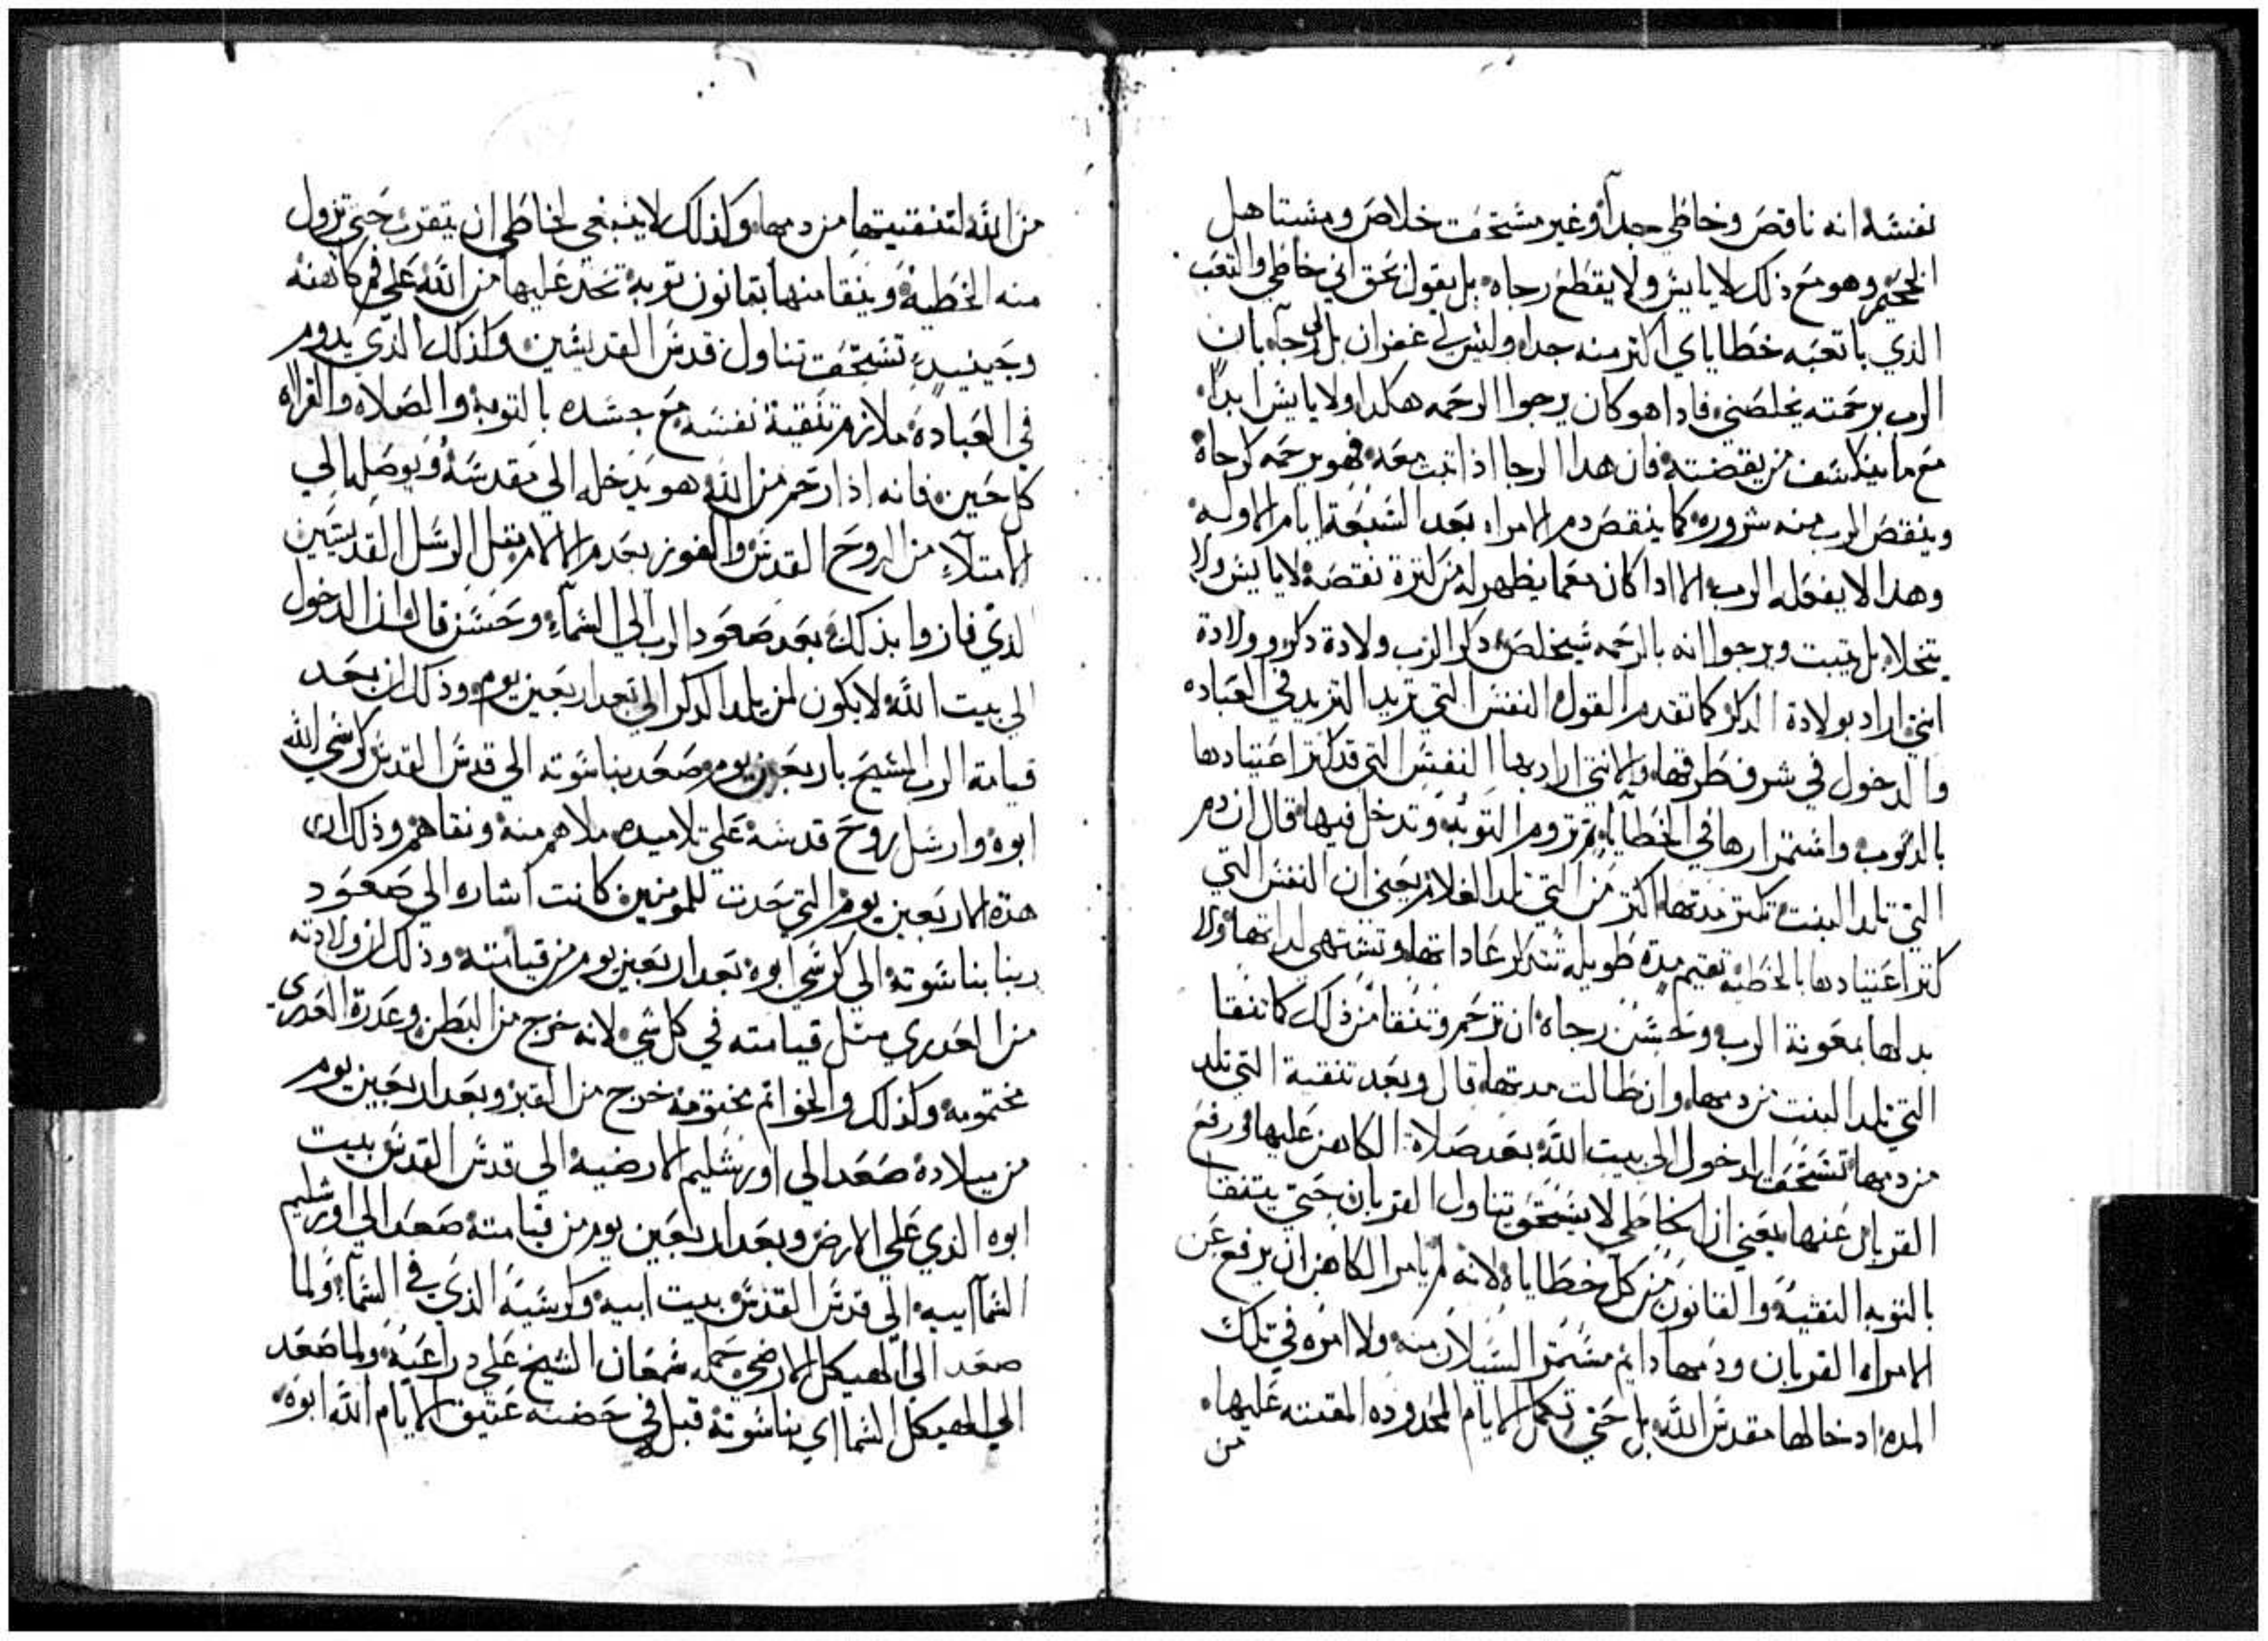 نفسه انه ناقص وخاطي جدا وغير مستحق خلاص ومستاهل
الجحيم وهو مع ذلك لا يايس ولا يقطع رجاه بل يقول بحق اني خاطي والتعب
الذي باتعبه خطاياي اكتر منه جدا وليس لي غفران بل لي رجا بان
الرب برحمته يخلصني فاداهو كان يرجوا الرحمه هكدا ولا يايس ابدا
مع ما ينكشف من يقضته فان هدا الرجا اذا تبت معه فهو يرحمه كرجاه
وينقص الرب منه شروره كما ينقص دم الامراه بعد السبعة ايام الاوله
وهدا لا يفعله الرب الا اداكان معما يظهر له من كترة نقصه لا يايس ولا
يتخلا بل يتبت ويرجوا انه بالرحمه سيخلص دكر الرب ولادة دكر وولادة
انتي اراد بولادة الدكر كما تقدم القول النفس التي تريد التزيد في العباده
والدخول في شرف طرقها والانتي اراد بها النفس التي قد كتر اعتيادها
بالدنوب واستمرارها في الخطايا تم تروم التوبه وتدخل فيها قال ان دم
التي تلد البنت تكتر مدتها اكتر من التي تلد الغلام يعني ان النفس التي
كتر اعتيادها بالخطيه تقيم مدة طويله تتدكر عاداتها وتشتهي لداتها ولا
بد لها بمعونة الرب وحسن رجاه ان ترحم وتنقا من ذلك كما تنقا
التي تلد البنت من دمها وان طالت مدتها قال وبعد تنقية التي تلد
من دمها تستحق الدخول الى بيت الله بعد صلاة الكاهن عليها ورفع
القربان عنها يعني ان الخاطي لا يستحق تناول القربان حتي يتنقا
بالتوبه النقيه والقانون من كل خطاياه لانه لم يامر الكاهن ان يرفع عن
الامراه القربان ودمها دايم مستمر السيلان منه ولا امره في تلك
المده ادخالها مقدس الله بل حتي تكمل الايام المحدوده المقننه عليها
من
من الله لتنقيتها من دمها وكذلك لا ينبغي لخاطي ان يتقرب حتي تزول
منه الخطيه وينقا منها بقانون توبة تحد عليها من الله علي فم كاهنه
وحينيد تستحق تناول قدس القديسين وكذلك الذي يدوم
في العبادة ملازم تنقية نفسه مع جسده بالتوبه والصلاه والقراه
كل حين فانه اذا رحم من الله هو يدخله الي مقدسه ويوصلها الي
الامتلاء من الروح القدس والفوز بعدم الالام متل الرسل القديسين
لدي فازوا بذلك بعد صعود الرب الي السماء وحسن قال ان الدخول
الي بيت الله لا يكون لمن يلد الدكر الي بعد اربعين يوم وذلك ان بعد
قيامة الرب المسيح باربعين يوم صعد بناسوته الي قدس القدس كرسي الله
ابوه وارسل روح قدسه علي تلاميده ملاهم منه ونقاهم وذلك ان
هذه الاربعين يوم التي تحدت للمومنين كانت اشاره الي صعود
ربنا بناسوته الي كرسي ابوه بعد اربعين يوم من قيامته وذلك ان ولادته
من العدري متل قيامته في كل شي لانه خرج من البطن وعدرة العدري
مختومه وكذلك والخواتم مختومة خرج من القبر وبعد اربعين يوم
من ميلاده صعد الي اورشليم الارضيه الي قدس القدس بيت
ابوه الذي علي الارض وبعد اربعين يوم من قيامته صعد الي اورشليم
السماايه الي قدس القدس بيت ابيه وكرسيه الذي في السماء ولما
صعد الي الهيكل الارضي حمله سمعان الشيخ علي دراعيه ولما صعد
الي الهيكل السمااي بناسوته قبله في حضنه عتيق الايام الله ابوه